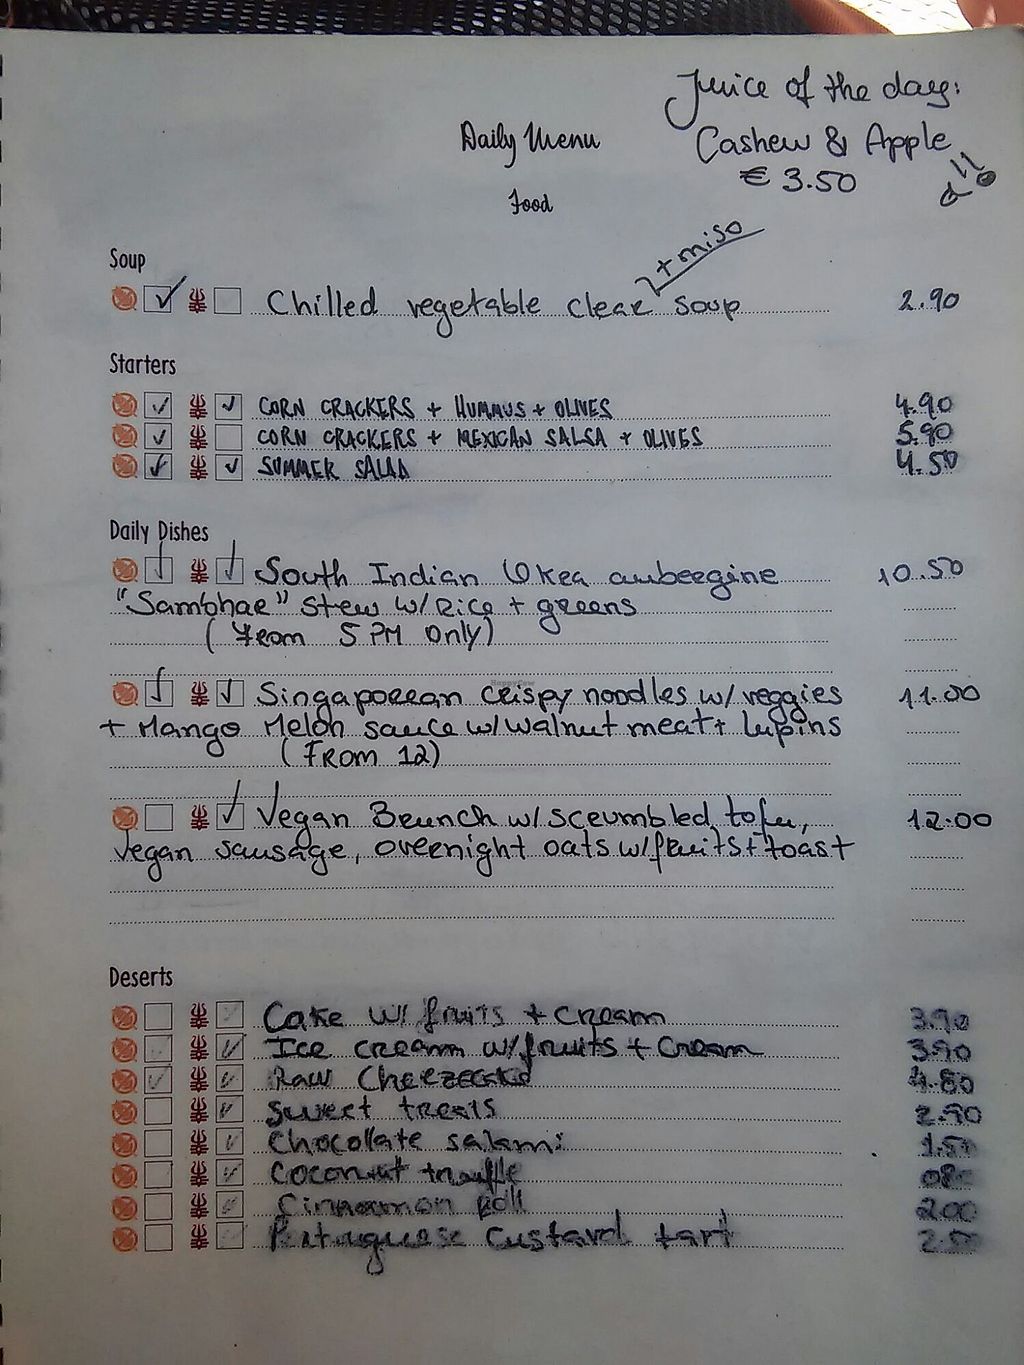 Juice of the day:
Cashew & Apple
€ 3.50
Daily Menu
Food
Soup
+ miso
Chilled vegetable clear soup 2.90
Starters
CORN CRACKERS + HUMMUS + OLIVES 4.90
CORN CRACKERS + MEXICAN SALSA + OLIVES 5.90
SUMMER SALAD 4.50
Daily Dishes
South Indian Okra aubergine 10.50
"Sambhar" stew w/ Rice + greens
(From 5 PM only)
Singaporean crispy noodles w/ veggies 11.00
+ Mango Melon sauce w/ walnut meat + lupins
(FROM 12)
Vegan Brunch w/ scrumbled tofu, 12.00
vegan sausage, overnight oats w/ fruits + toast
Deserts
Cake w/ fruits + cream 3.90
Ice cream w/ fruits + Cream 3.90
Raw 4.80
Sweet treats 2.90
Chocolate salami 1.50
Coconut truffle
Cinnamon Roll 2.00
Portuguese custard tart 2.50
HappyCow